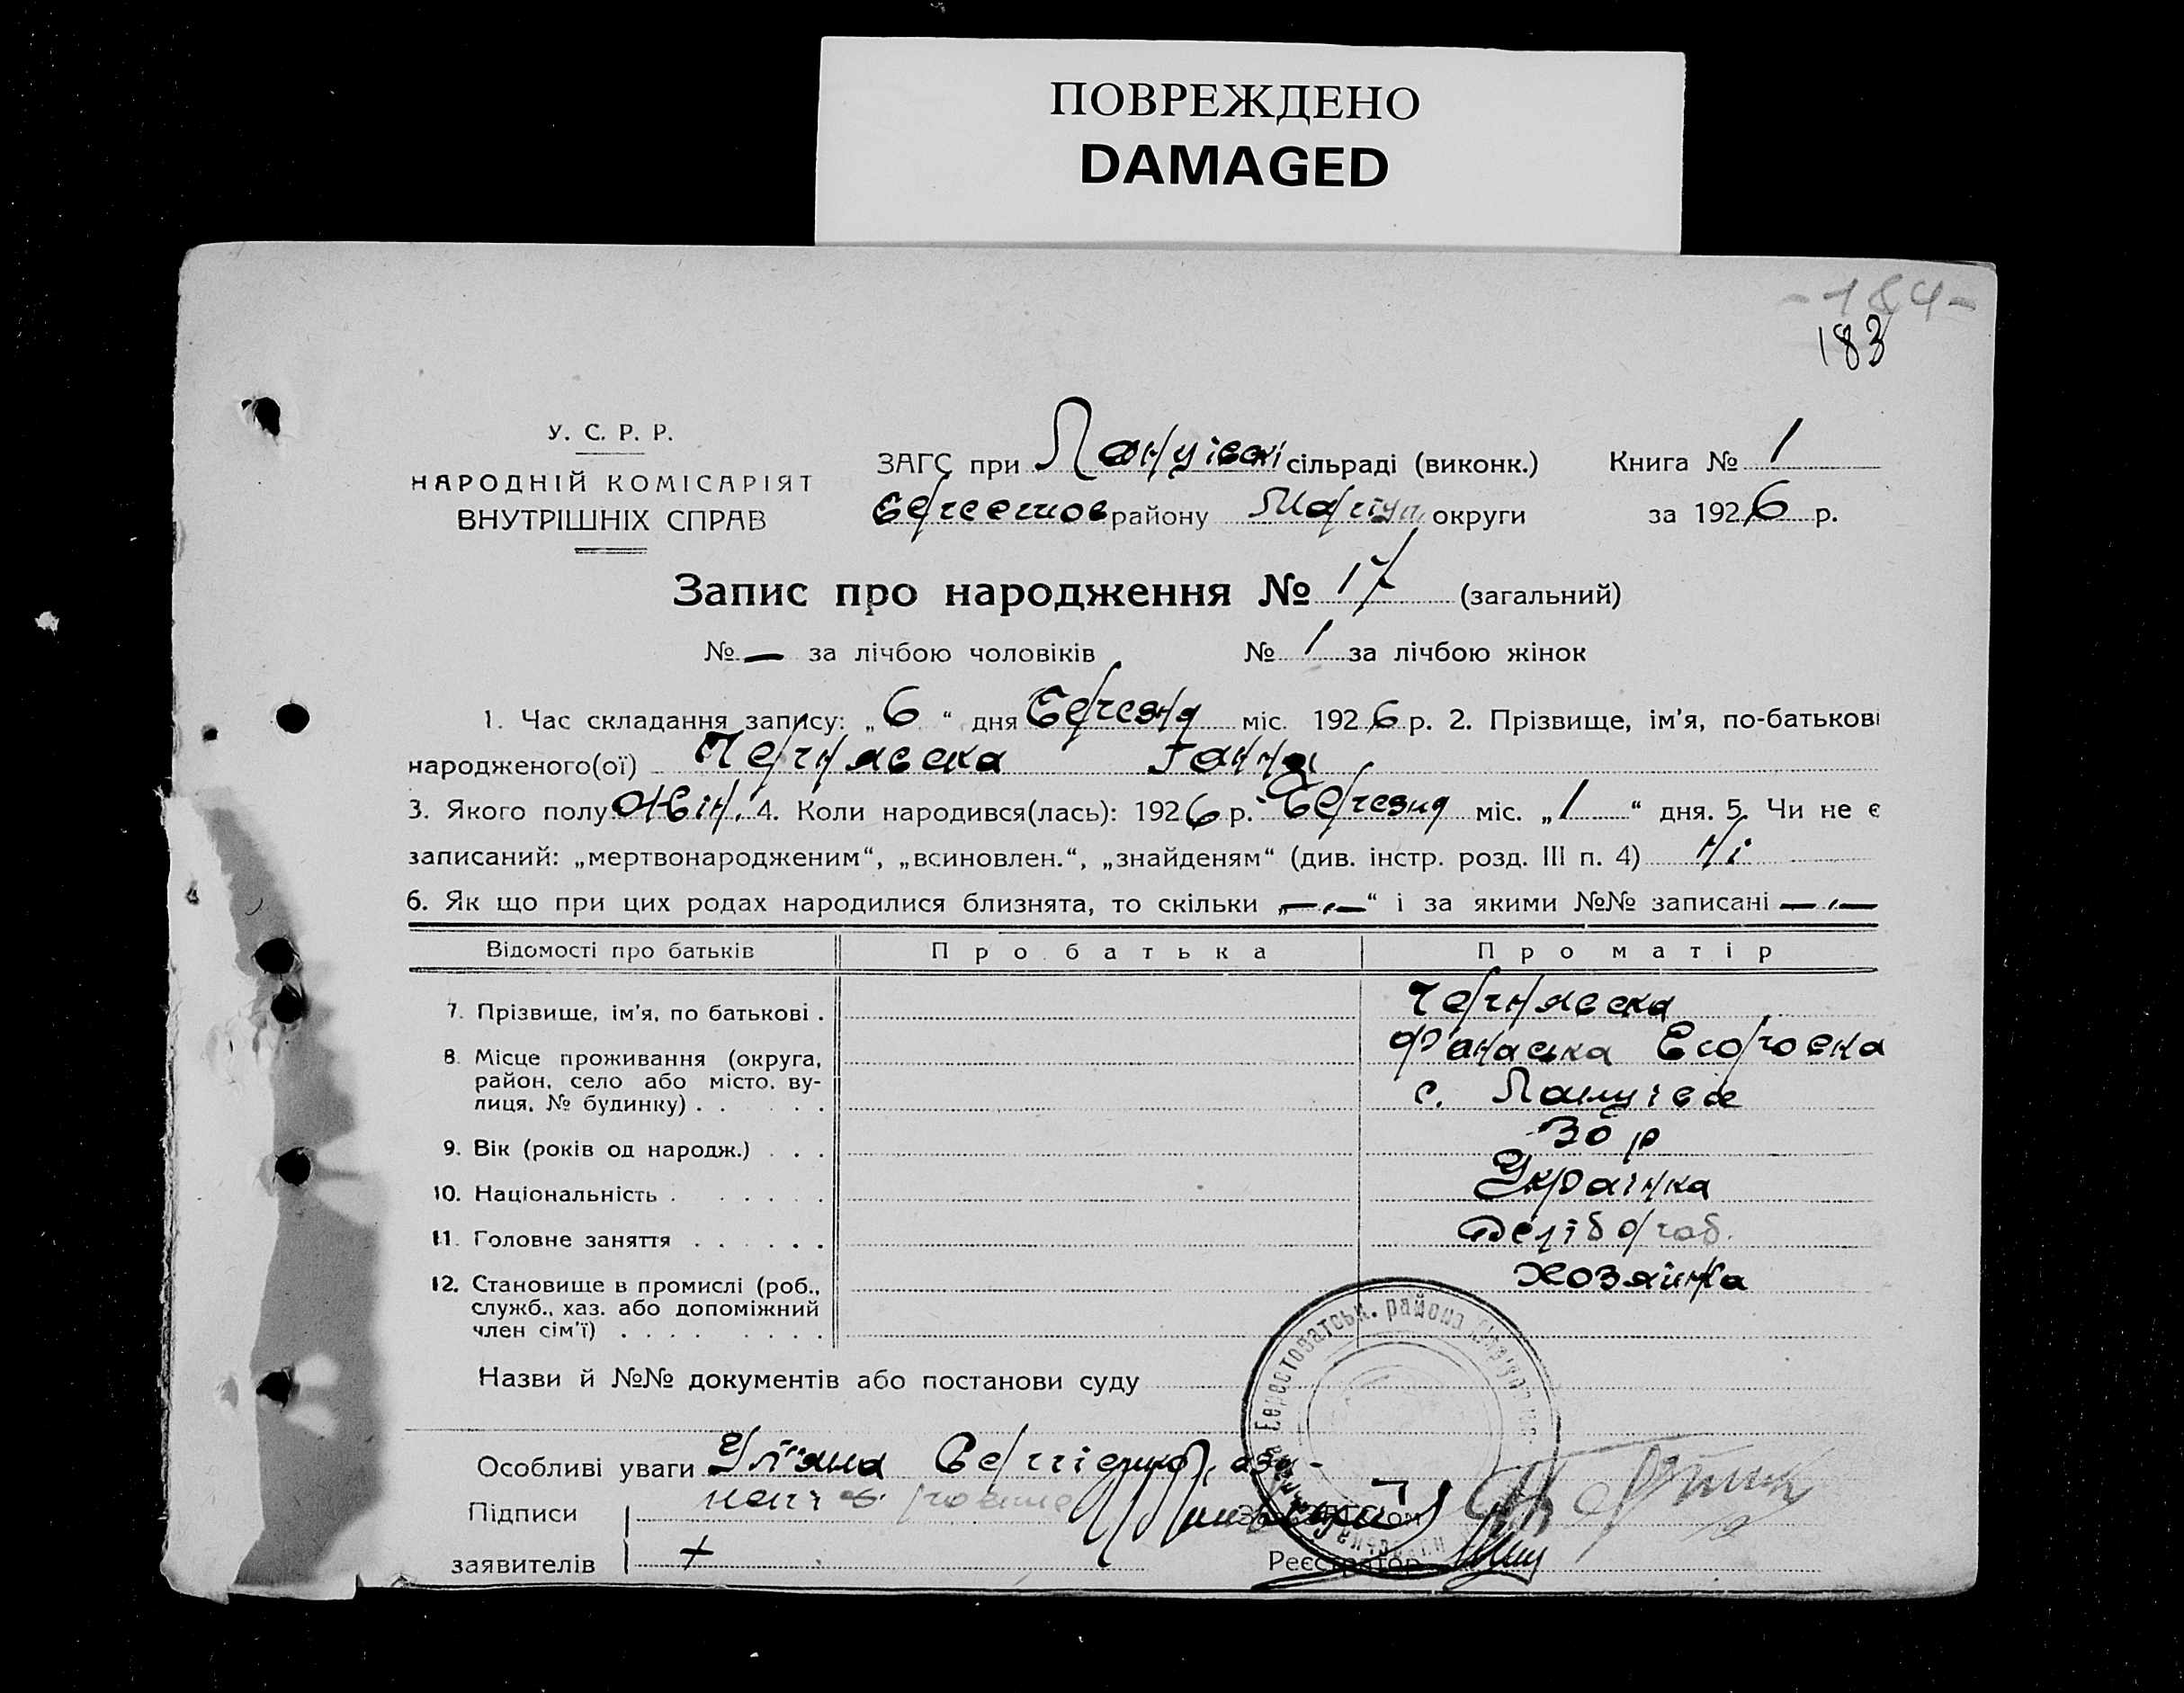 ПОВРЕЖДЕНО
DAMAGED
-184-
183
У. С. Р. Р.
НАРОДНІЙ КОМІСАРІЯТ
ВНУТРІШНІХ СПРАВ
ЗАГС при сільраді (виконк.) Книга № 1
району Маріуп. округи за 1926 р.
Запис про народження № 17 (загальний)
№ — за лічбою чоловіків № 1 за лічбою жінок
1. Час складання запису: „6“ дня Березня міс. 1926 р. 2. Прізвище, ім'я, по-батькові
народженого(ої) Чернявска Ганна
3. Якого полу Жін. 4. Коли народився(лась): 1926 р. Березня міс. „1“ дня. 5. Чи не є
записаний: „мертвонародженим“, „всиновлен.“, „знайденям“ (див. інстр. розд. III п. 4) Ні
6. Як що при цих родах народилися близнята, то скільки „—„—“ і за якими №№ записані —„—
Відомості про батьків Про батька Про матір
7. Прізвище, ім'я, по батькові . Чернявска
8. Місце проживання (округа, Фанаска Егоровна
район, село або місто, ву-
лиця, № будинку) . . . . . с.
9. Вік (років од народж.) . . . 30 р
10. Національність . . . . . . Українка
11. Головне заняття . . . . . . Хлібороб.
12. Становище в промислі (роб., Хозяйка
служб., хаз. або допоміжний
член сім'ї) . . . . . . . . .
Назви й №№ документів або постанови суду
Особливі уваги
Підписи
Зав. ЗАГС'ом
заявителів +
Реєстратор